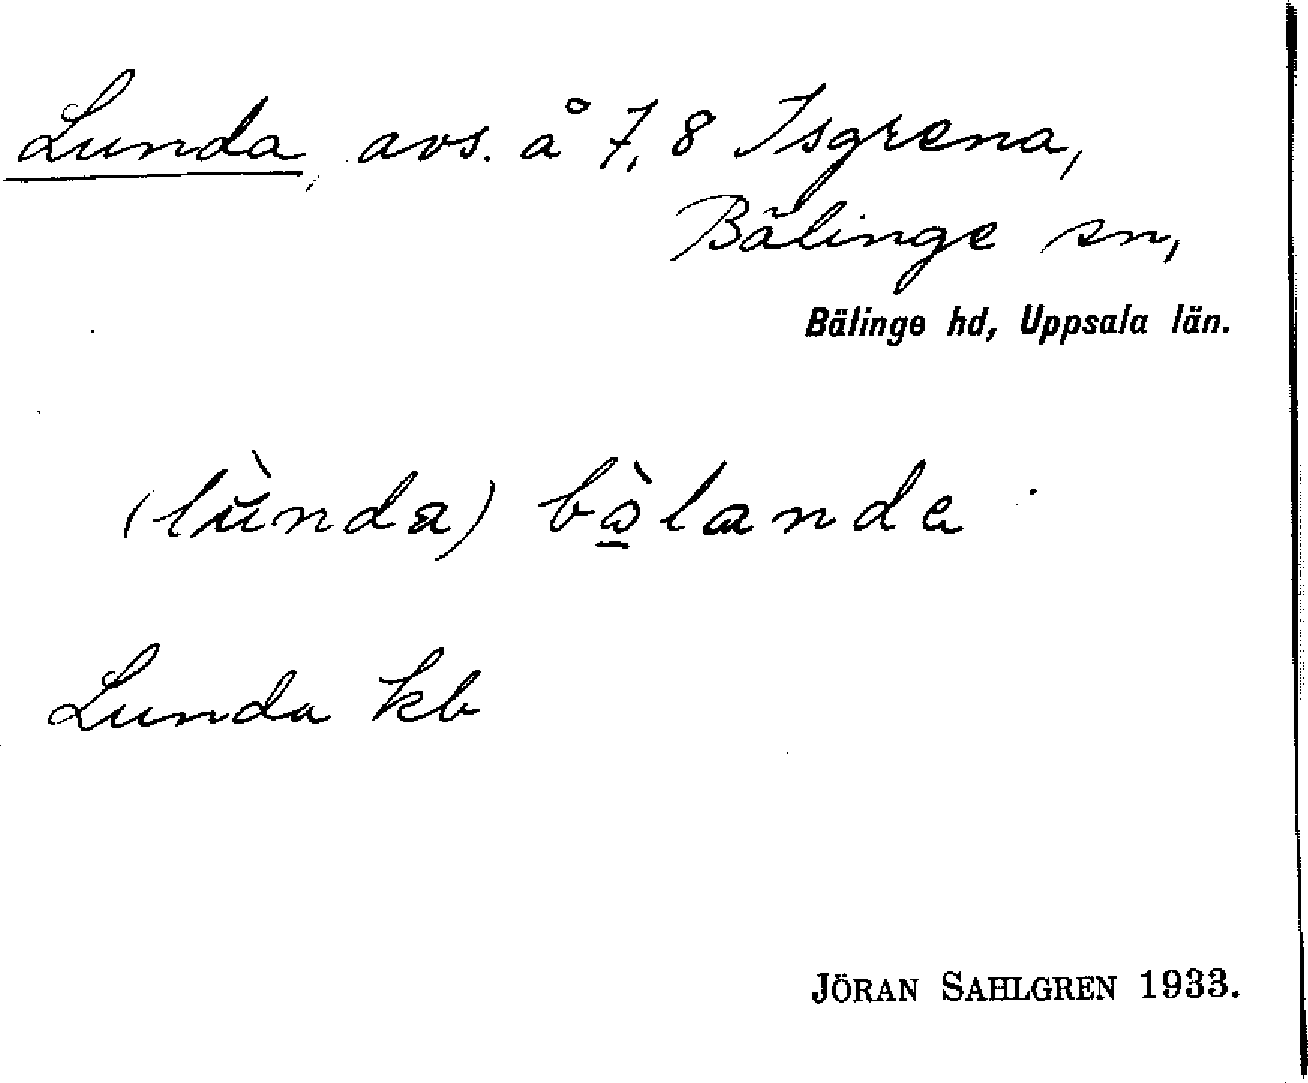 Lunda, avs. å 7, 8 Isgrena,
Bälinge sn,
Bälinge hd, Uppsala län.
(lùnda) bò̱landa
Lunda kb
JÖRAN SAHLGREN 1933.